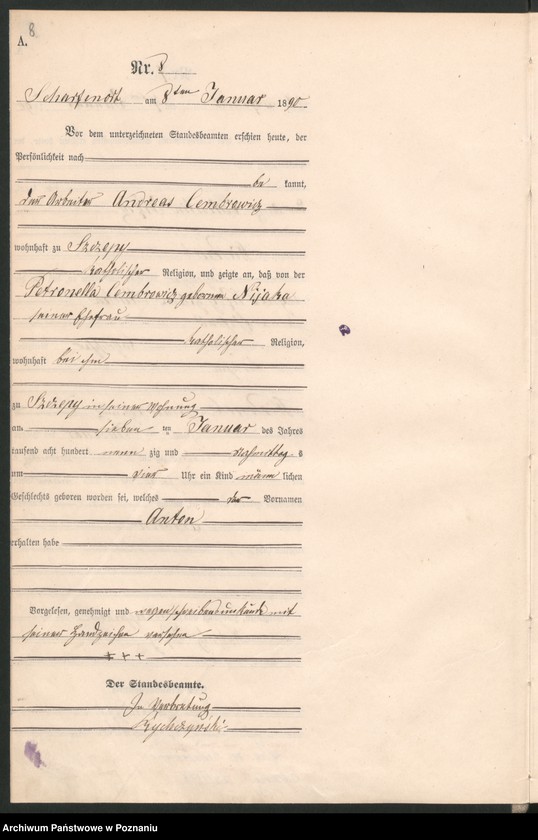 8
A.
Nr. 8
Scharfenort am 8ten Januar 1890.
Vor dem unterzeichneten Standesbeamten erschien heute, der
Persönlichkeit nach
be kannt,
der Arbeiter Andreas Cembrowicz
wohnhaft zu Szczepy
katholischer Religion, und zeigte an, daß von der
Petronella Cembrowicz geborenen Nijaka
seiner Ehefrau
katholischer Religion,
wohnhaft bei ihm
zu Szczepy in seiner Wohnung
am sieben ten Januar des Jahres
tausend acht hundert neun zig und Nachmittag s
um vier Uhr ein Kind männ lichen
Geschlechts geboren worden sei, welches den Vornamen
Anton
erhalten habe
Vorgelesen, genehmigt und wegen Schreibensunkunde mit
seinem Handzeichen versehen
+ + +
Der Standesbeamte.
In Vertretung
Archiwum Państwowe w Poznaniu